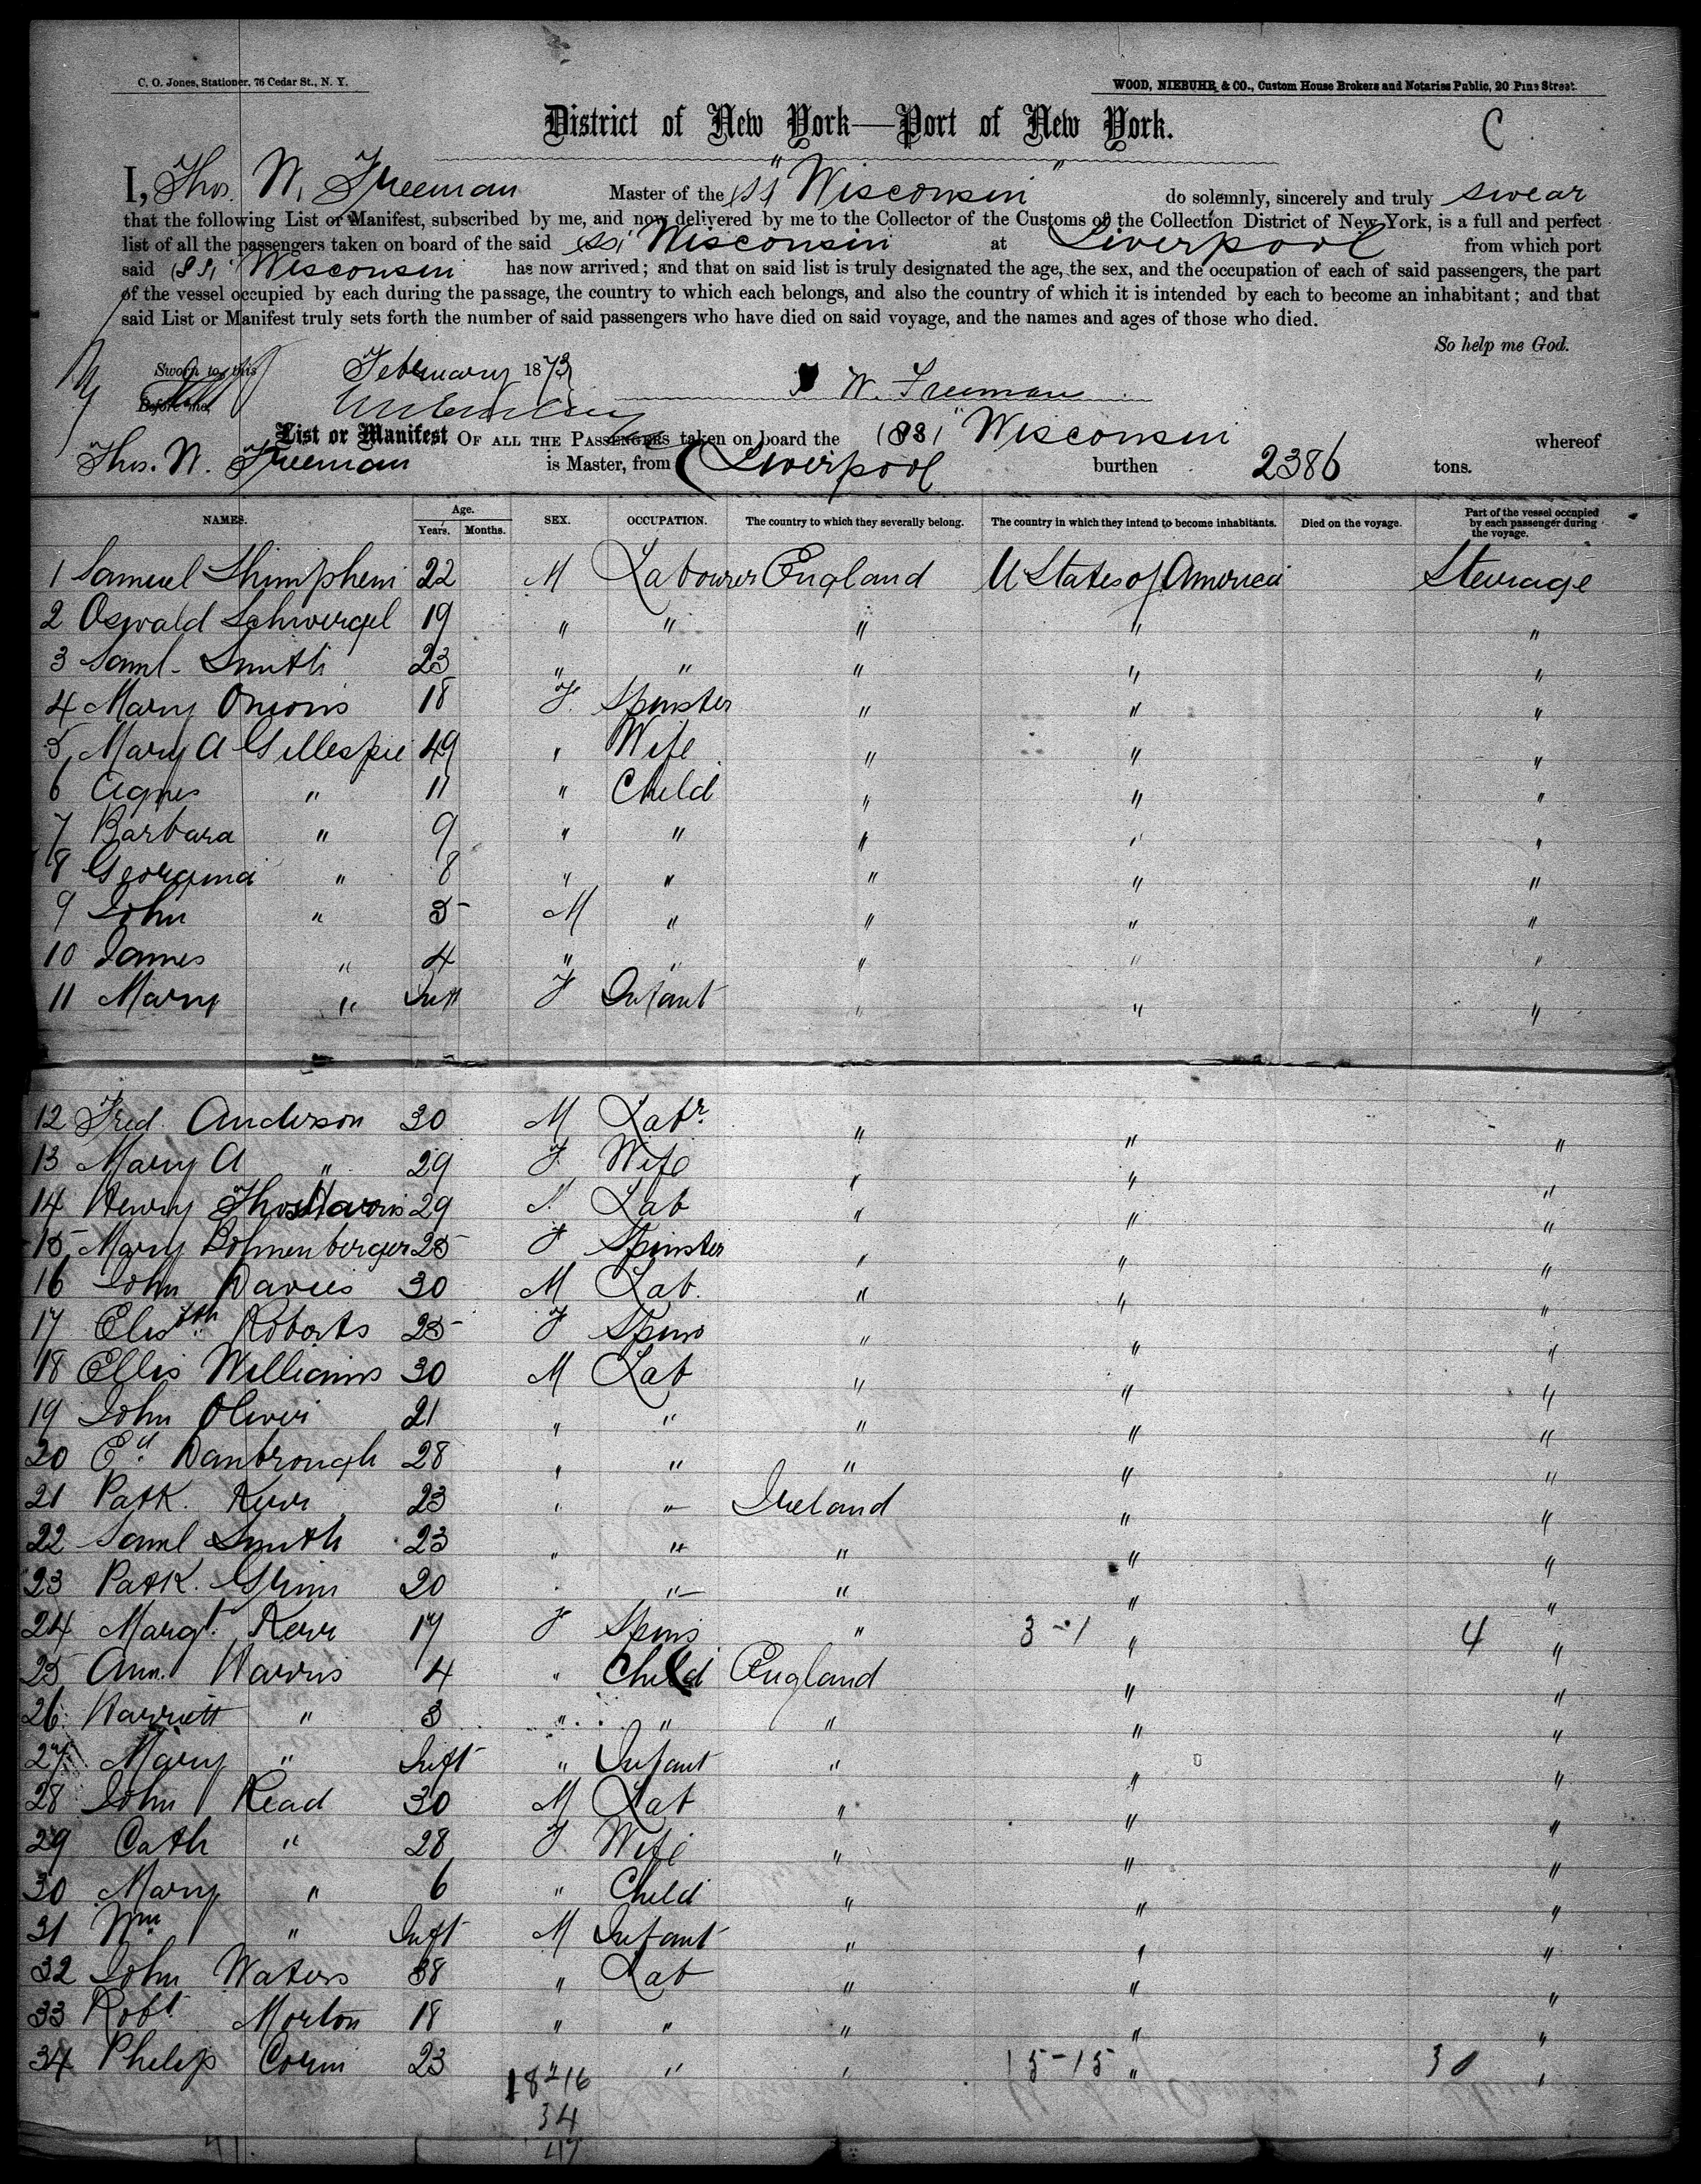 C. O. Jones, Stationer, 76 Cedar St., N. Y.
WOOD, NIEBUHR & CO., Custom House Brokers and Notaries Public, 20 Pine Street.
C
District of New York—Port of New York.
I, Thos. W. Freeman Master of the (SS) "Wisconsin" do solemnly, sincerely and truly swear
that the following List or Manifest, subscribed by me, and now delivered by me to the Collector of the Customs of the Collection District of New York, is a full and perfect
list of all the passengers taken on board of the said SS Wisconsin at Liverpool from which port
said (SS) Wisconsin has now arrived; and that on said list is truly designated the age, the sex, and the occupation of each of said passengers, the part
of the vessel occupied by each during the passage, the country to which each belongs, and also the country of which it is intended by each to become an inhabitant; and that
said List or Manifest truly sets forth the number of said passengers who have died on said voyage, and the names and ages of those who died.
So help me God.
Sworn to, this February 1873
W. Freeman
Before me,
List or Manifest OF ALL THE PASSENGERS taken on board the (SS) Wisconsin whereof
Thos. W. Freeman is Master, from Liverpool burthen 2386 tons.
NAMES. Age. Years. Months. SEX. OCCUPATION. The country to which they severally belong. The country in which they intend to become inhabitants. Died on the voyage. Part of the vessel occupied by each passenger during the voyage.
1 Samuel 22 M Labourer England U States of America Steerage
2 Oswald 19 " " " " "
3 Saml Smith 23 " " " " "
4 Mary Onions 18 F. Spinster " " "
5 Mary A Gillespie 49 " Wife " " "
6 Agnes " 11 " Child " " "
7 Barbara " 9 " " " " "
8 Georgina " 8 " " " " "
9 John " 5 M " " " "
10 James " 4 " " " " "
11 Mary " Inft F Infant " " "
12 Fred. Anderson 30 M Labr " " "
13 Mary A " 29 F. Wife " " "
14 Henry Thos Harris 29 Lab " " "
15 Mary Bohnenberger 25 F Spinster " " "
16 John Davies 30 M Lab. " " "
17 Elisbth Roberts 25 F Spins " " "
18 Ellis Williams 30 M Lab " " "
19 John Oliver 21 " " " " "
20 Ed. Danbrough 28 " " " " "
21 Patk. Kerr 23 " " Ireland " "
22 Saml Smith 23 " " " " "
23 Patk. 20 " " " " "
24 Margt. Kerr 17 F Spins " 3-1 " 4 "
25 Ann. Harris 4 " Child England " "
26 Harriett " 3 " " " " "
27 Mary " Inft " Infant " " "
28 John Read 30 M Lab " " "
29 Cath " 28 F Wife " " "
30 Mary " 6 " Child " " "
31 Wm " Inft M Infant " " "
32 John Waters 38 " Lab " " "
33 Robt Morton 18 " " " " "
34 Philip 23 " " " 15-15 " 30 "
18 16
34
47